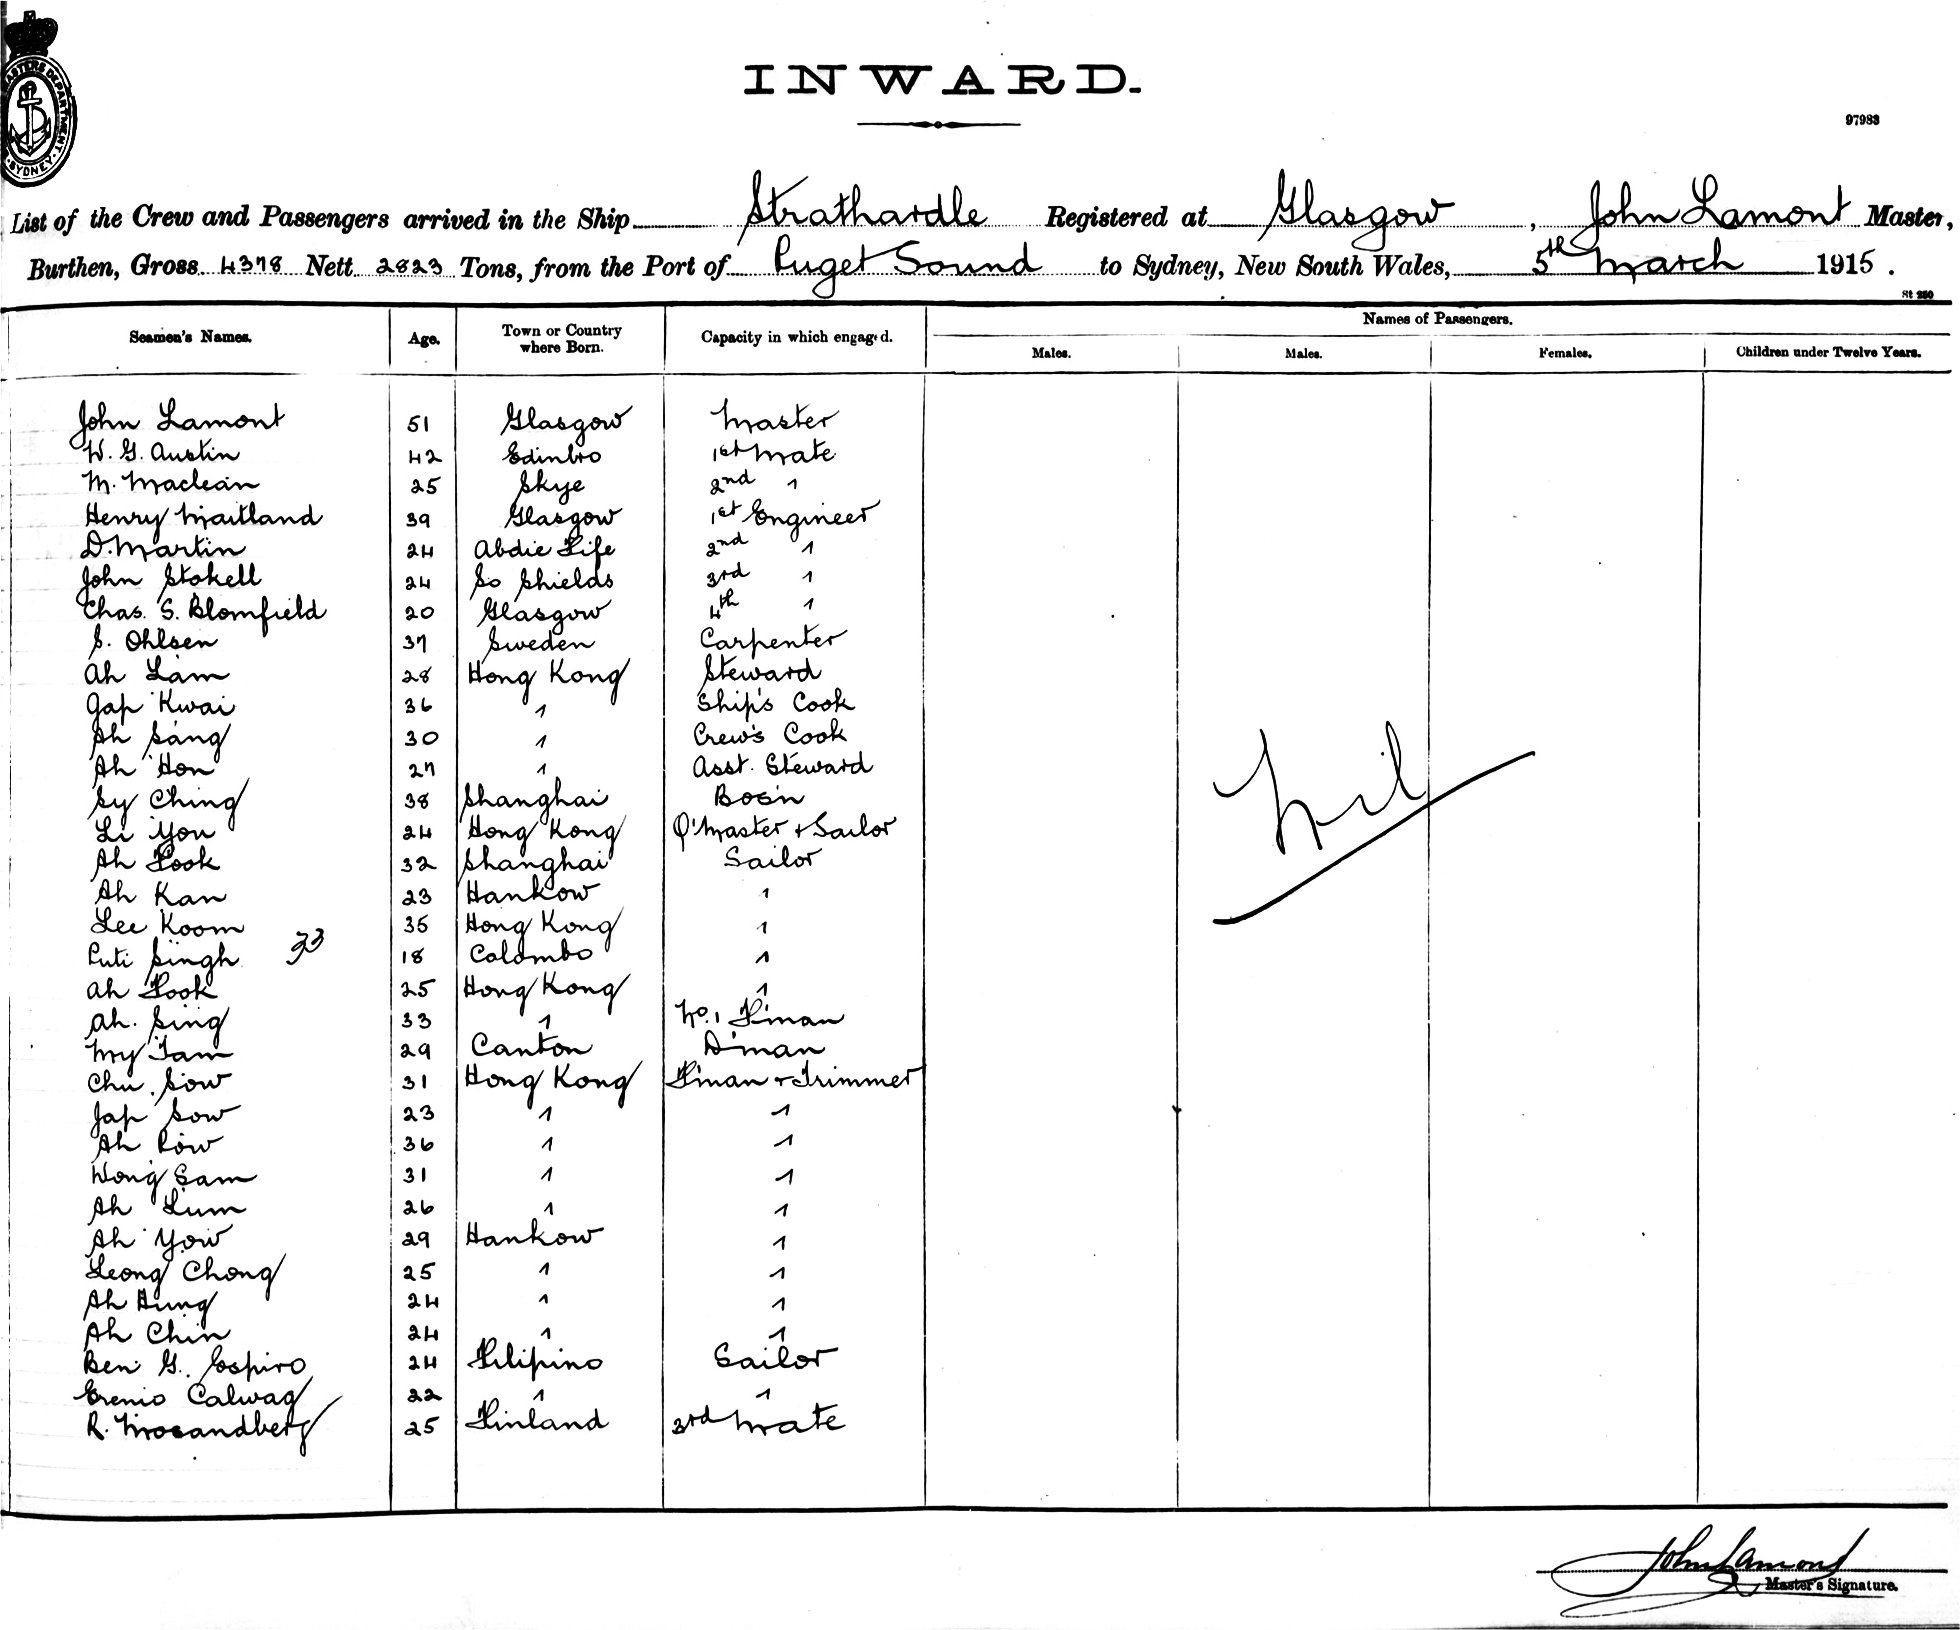 MASTERS DEPARTMENT · SYDNEY ·
INWARD.
97983
List of the Crew and Passengers arrived in the Ship Strathardle Registered at Glasgow, John Lamont Master,
Burthen, Gross 4378 Nett 2823 Tons, from the Port of Puget Sound to Sydney, New South Wales, 5th March 1915.
St 250
Seamen's Names. Age. Town or Country where Born. Capacity in which engaged. Names of Passengers.
Males. Males. Females. Children under Twelve Years.
John Lamont 51 Glasgow Master
W. G. Austin 42 Edinbro 1st Mate
M. Maclean 25 Skye 2nd "
Henry Maitland 39 Glasgow 1st Engineer
D. Martin 24 Abdie Fife 2nd "
John Stokell 24 So Shields 3rd "
Chas. S. Blomfield 20 Glasgow 4th "
S. Ohlsen 37 Sweden Carpenter
Ah Lam 28 Hong Kong Steward
Gap Kwai 36 " Ship's Cook
Ah Sang 30 " Crew's Cook
Ah Hon 27 " Asst. Steward
Sy Ching 38 Shanghai Bos'n
Li You 24 Hong Kong Q'Master + Sailor
Ah Fook 32 Shanghai Sailor
Ah Kan 23 Hankow "
Lee Koom 35 Hong Kong "
Puti Singh 33 18 Colombo "
Ah Fook 25 Hong Kong "
Ah. Sing 33 " No. 1 F'man
My Tam 29 Canton D'man
Chu Sow 31 Hong Kong F'man + Trimmer
Jap Sow 23 " "
Ah Row 36 " "
Wong Sam 31 " "
Ah Lum 26 " "
Ah Yow 29 Hankow "
Leong Chong 25 " "
Ah Hung 24 " "
Ah Chin 24 " "
Ben G. Espiro 24 Filipino Sailor
Erenio Calwag 22 " "
R. Mosandberg 25 Finland 3rd Mate
Nil
John Lamont
Master's Signature.